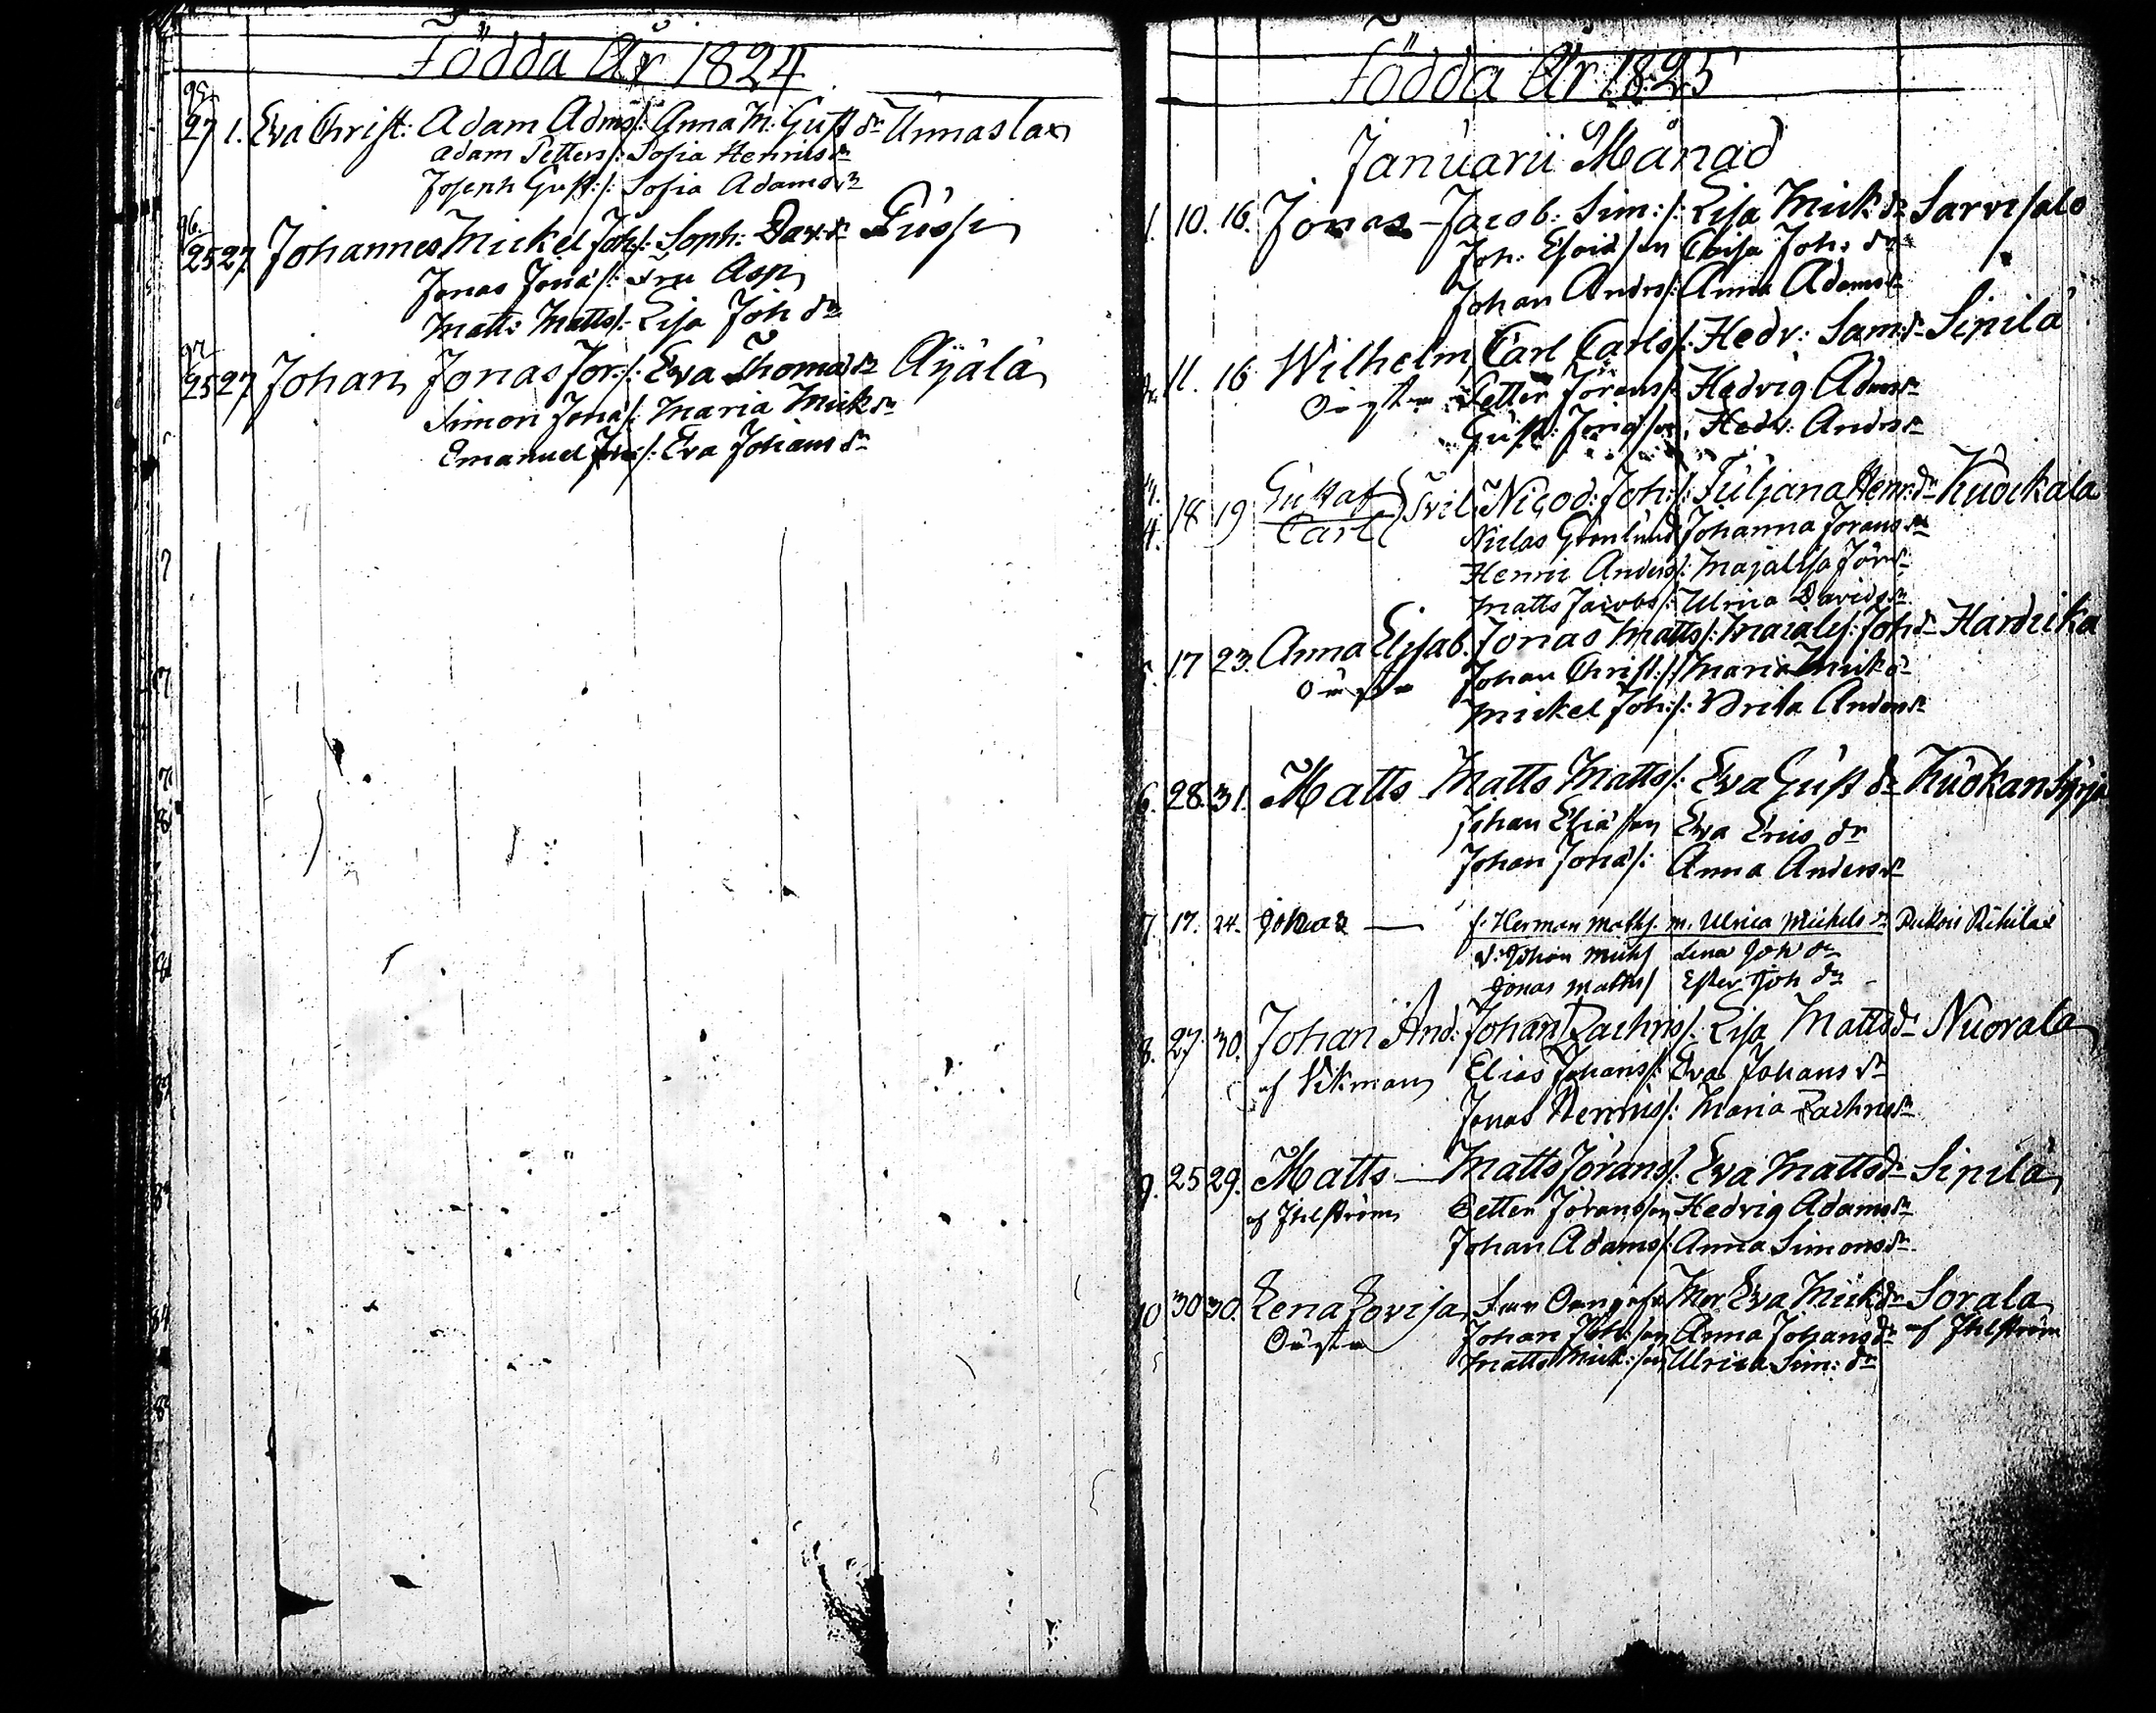 Födda År 1824
95.
27 1. Eva Christ: Adam Adms/: Anna M: Gust dr Unnaslax
Adam Petters/: Sofia Henrics dr
Joseph Gust:/: Sofia Adams dr
96.
25 27. Johannes Mickel Joh/: Soph: Dav: dr Pussi
Jonas Jona/: Fru Asp
Matts Matts/: Lisa Joh dr
97
25 27. Johan Jonas Jör:/: Eva Thomas dr Äyälä
Simon Jona/: Maria Mick dr
Emanuel /: Eva Johans dr
Födda År 1825
Januarii Månad
1. 10. 16. Jonas Jacob: Sim:/: Lisa Mick: dr Sarvisalo
Joh: Esaiason Caisa Joh: dr
Johan Andrs/: Anna Adams dr
11. 16 Wilhelm Carl Carls/: Hedv: Sam: dr Sipilä
Petter Jörans/: Hedvig Adams dr
Gust: , Hedv: Andrs dr
3.
4. 18 19 Gustaf Carl Tvil: Nicod: Joh:/: Juljana Henr: dr Kuockala
Niclas Grönlund Johanna Jörans dr
Henric Anders/: Majalisa Jör dr
Matts Jacobs/: Ulrica Davids dr
5. 17 23. Anna Elisab. Jonas Matts/: Majalis: Joh dr Hardicka
Johan Christ:/: Maria Mick dr
Mickel Joh:/: Brita Anders dr
6. 28. 31. Matts Matts Matts/: Eva Gust dr
Johan Eliason Eva Erics dr
Johan Jona/: Anna Anders dr
7. 17. 24. Johan — f. Herman Maths. m. Ulrica Michels dr
v: Johan Mich/ Lena Joh dr
Jonas Maths/ Ester Joh dr
8. 27. 30. Johan And: Johan Zachris/: Lisa Matts dr Nuorala
af Vikman Elias Johans/: Eva Johans dr
Jonas Henrics/: Maria Zachris dr
9. 25 29. Matts — Matts Jörans/: Eva Matts dr Sipilä
af Ihlström Petter Jöransson Hedvig Adams dr
Johan Adams/: Anna Simons dr
10 30 30. Lena Lovisa Mor Eva Mick dr Sorala
Johan Joh:son Anna Johans dr af Ihlström
Matts Mick:son Ulrica Sim: dr